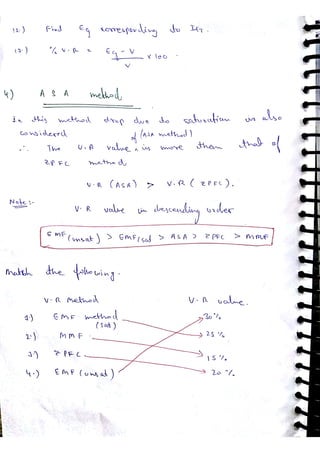 12.) Find Eg corresponding to If1.
13.) % V.R = Eg - V / V x 100
4) A S A method
In this method drop due to saturation is also
considered
∴ The V.R value of (ASA method) is more than that of
ZPFC method.
V.R (ASA) > V.R (ZPFC).
Note :- V.R value in descending order
EMF (unsat) > EMF/sat > ASA > ZPFC > MMF
match the following.
V.R method V.R value.
1) EMF method (sat) 30 %
2.) MMF 25 %
3) ZPFC 15 %
4.) EMF (unsat) 20 %.